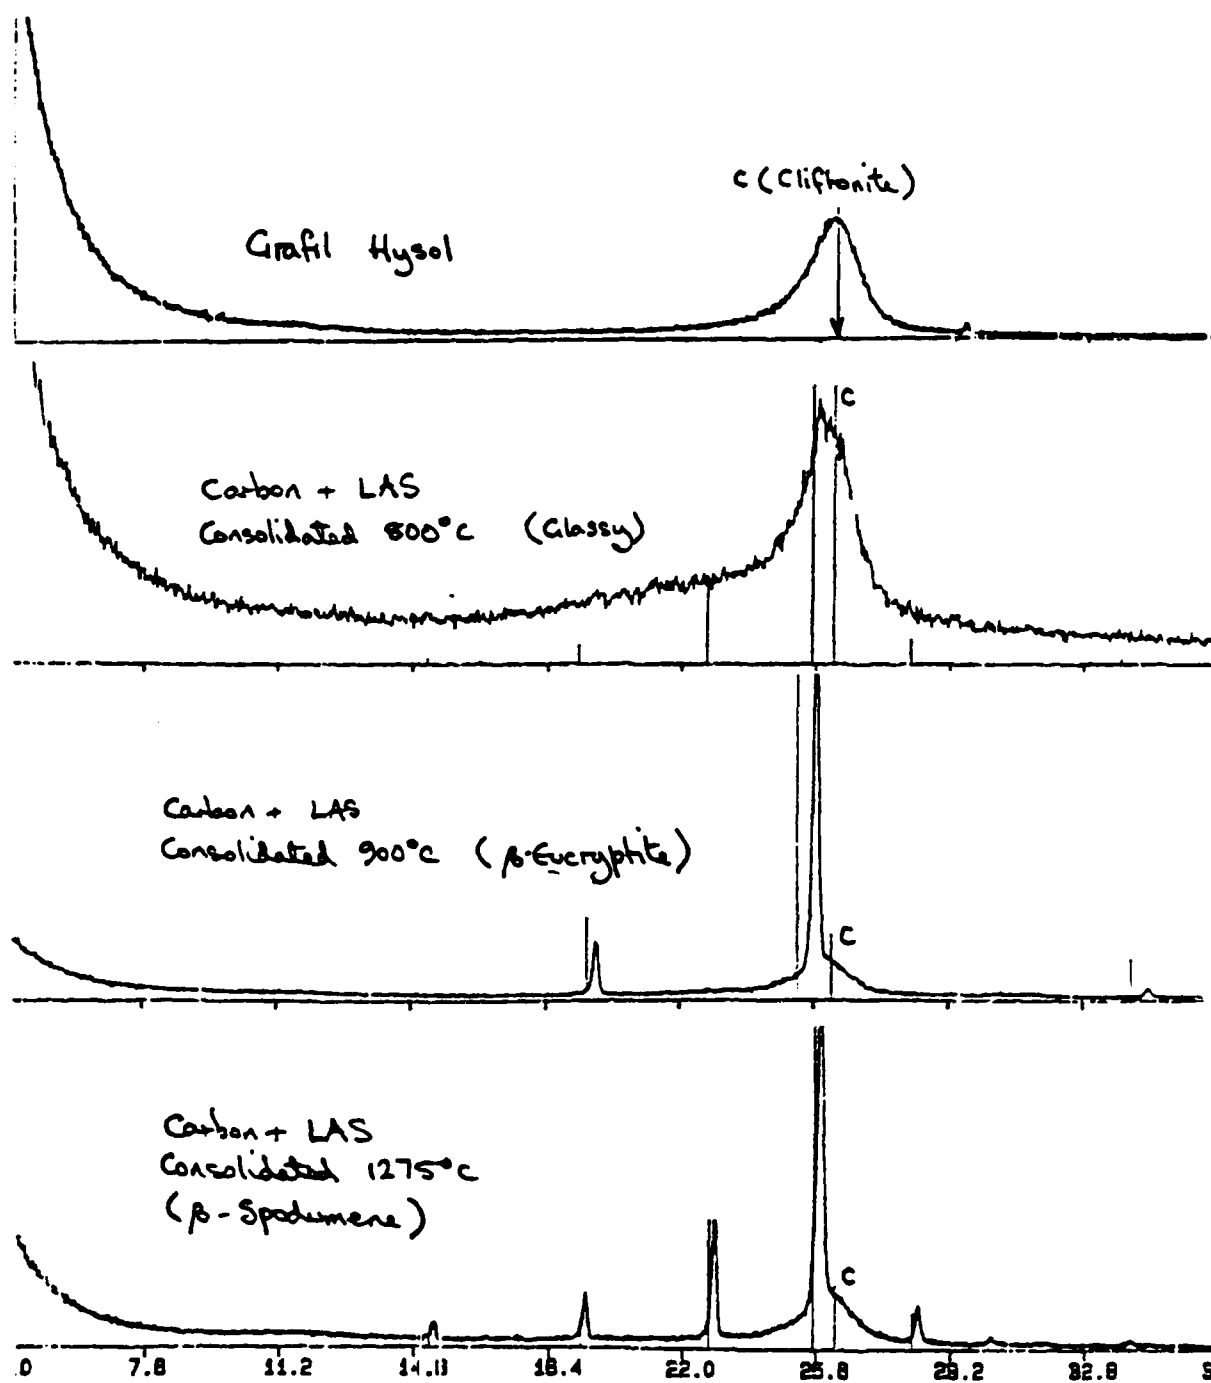 C (Cliftonite)
Grafil Hysol
C
Carbon + LAS
Consolidated 800°C (Glassy)
Carbon + LAS
Consolidated 900°C (β-Eucryptite)
C
Carbon + LAS
Consolidated 1275°C
(β-Spodumene)
C
.0 7.6 11.2 14.11 18.4 22.0 25.6 29.2 32.8